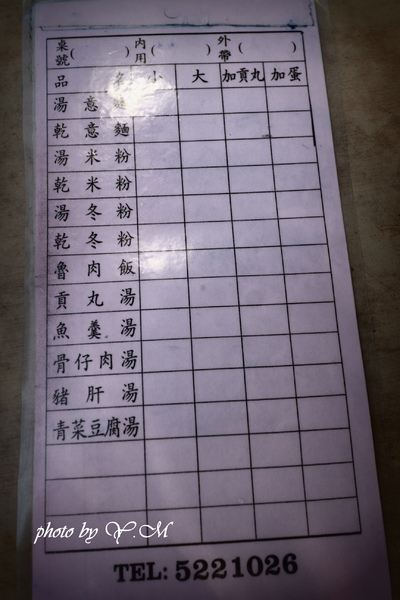 桌號( ) 內用( ) 外帶( )
品名 小 大 加貢丸 加蛋
湯意麵
乾意麵
湯米粉
乾米粉
湯冬粉
乾冬粉
魯肉飯
貢丸湯
魚羹湯
骨仔肉湯
豬肝湯
青菜豆腐湯
photo by Y.M
TEL: 5221026